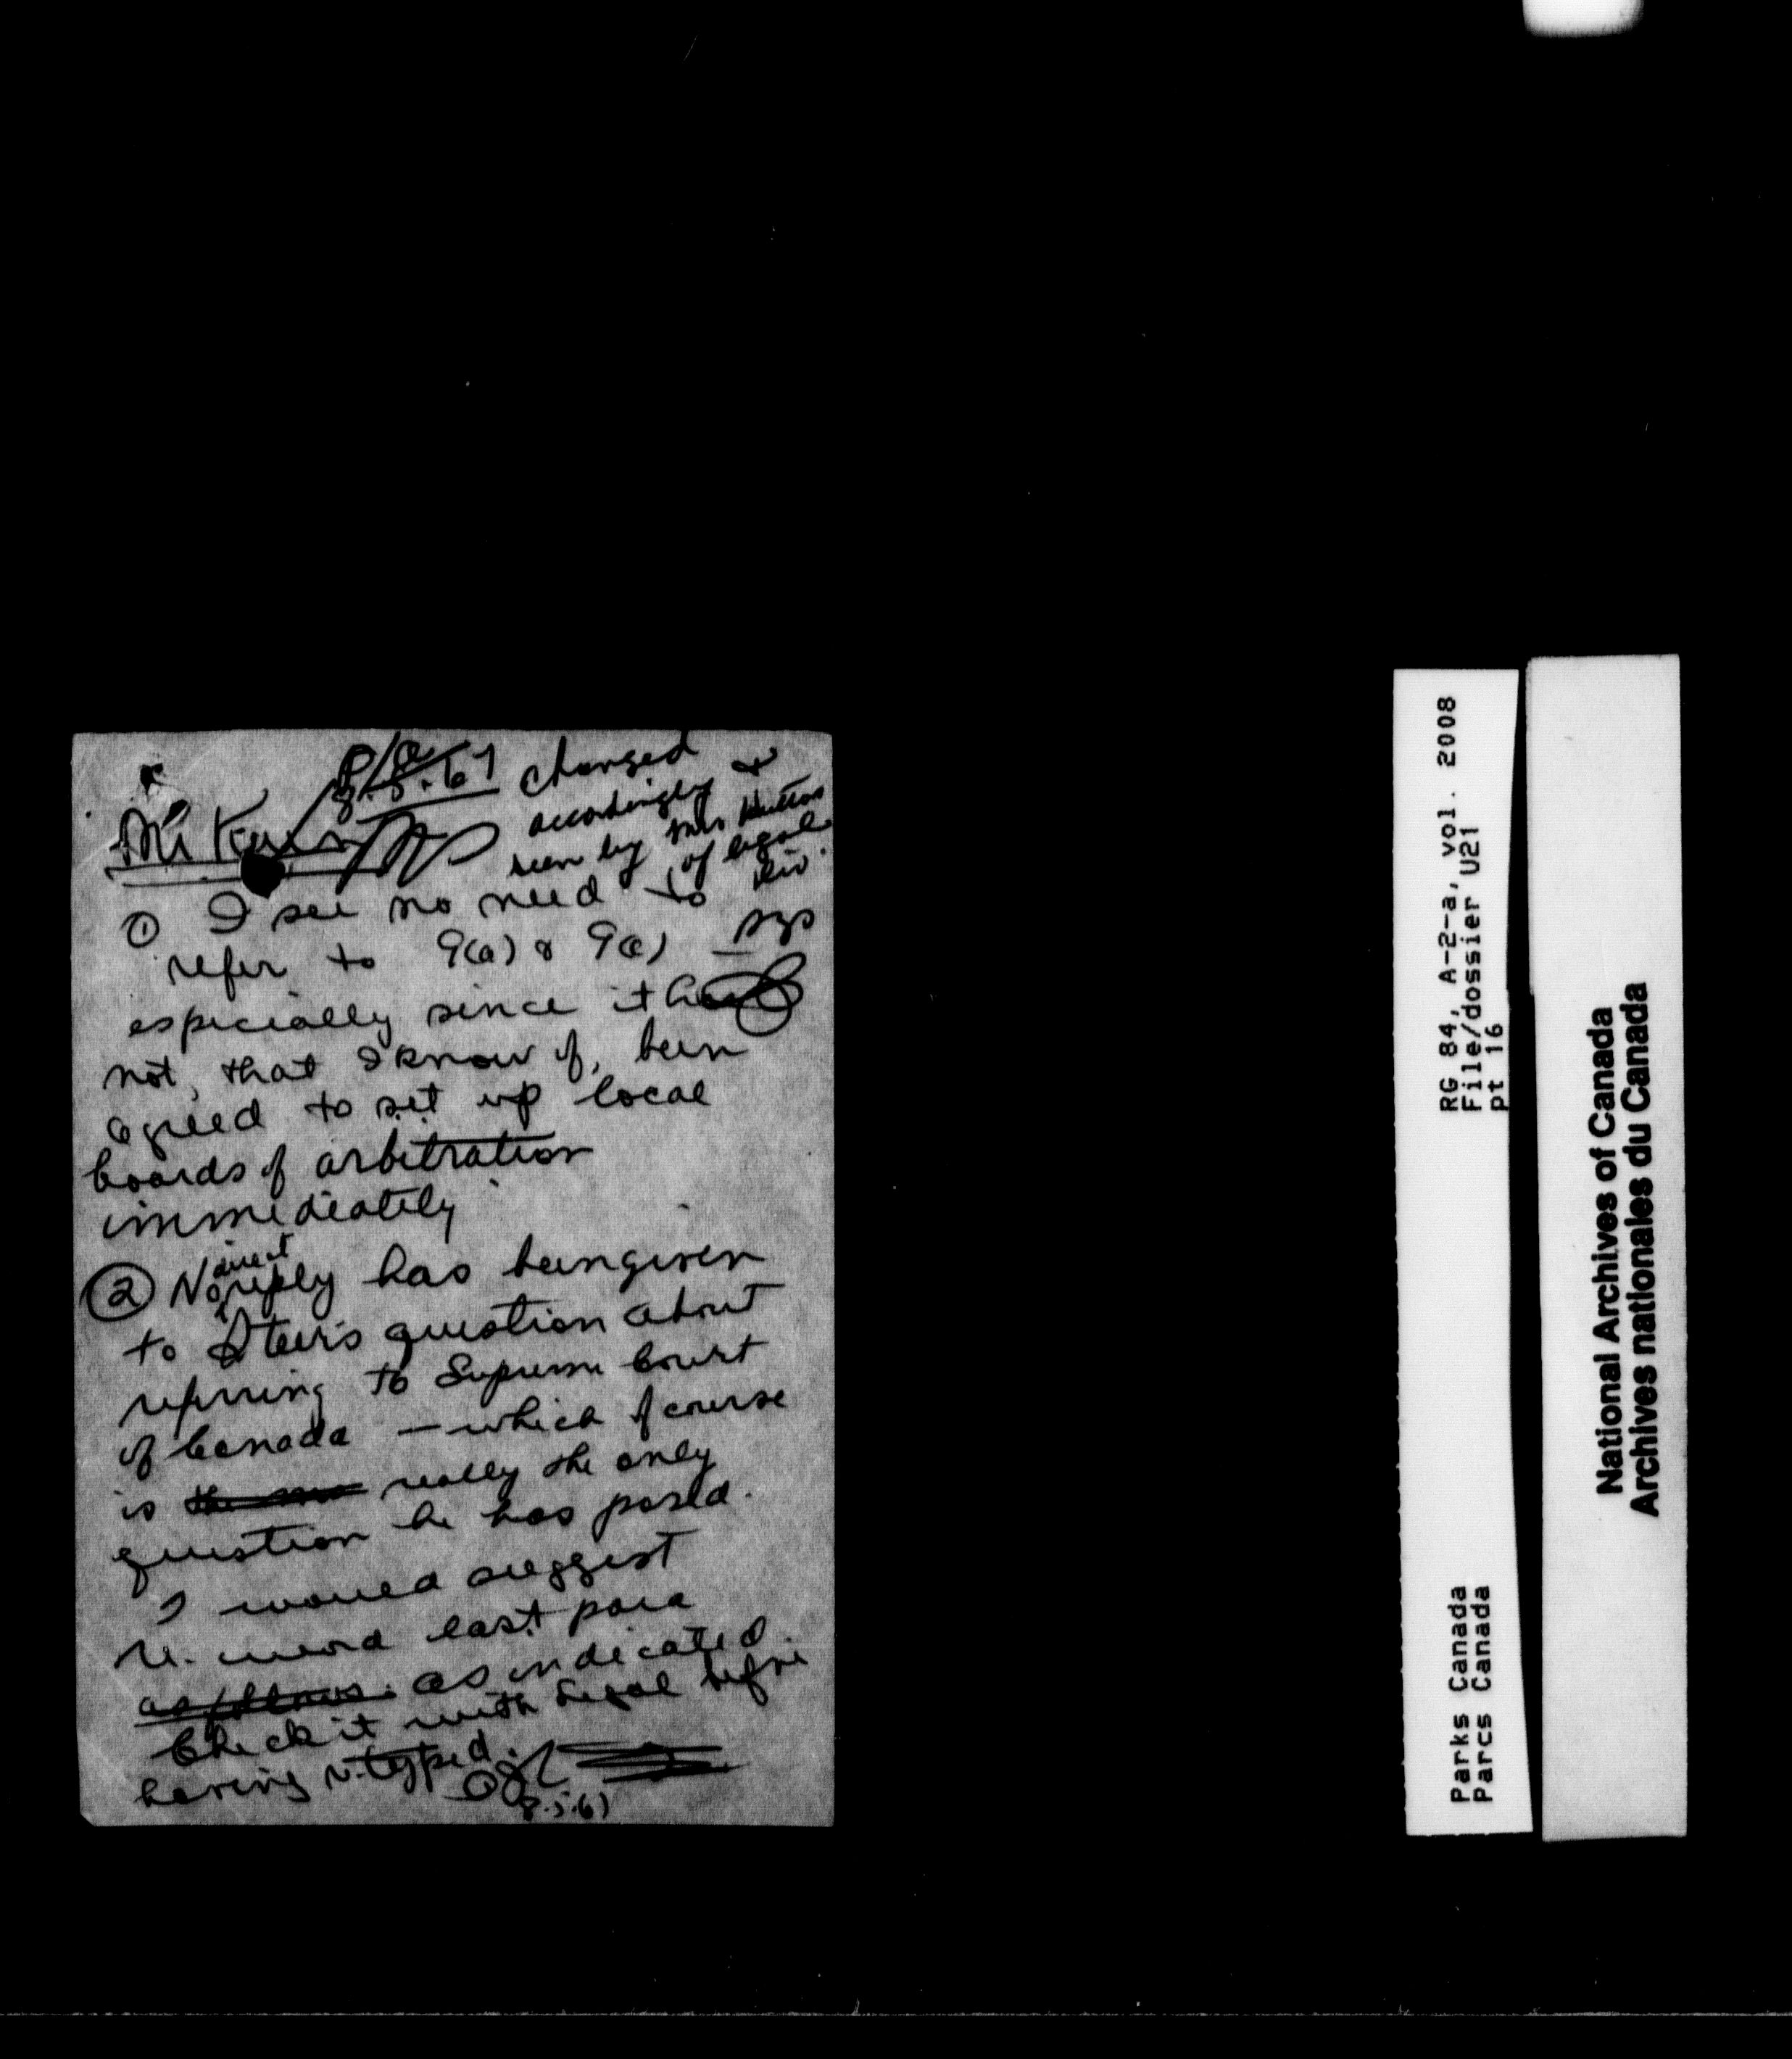 P/A
8.5.67 changed
accordingly &
seen by Mrs Hutton
of legal
Div.
Mr
① I see no need to
refer to 9(a) & 9(e)
especially since it has
not, that I know of, been
agreed to set up local
boards of arbitration
immediately
② No direct reply has been given
to Steer's question about
referring to Supreme Court
of Canada — which of course
is really the only
question he has posed.
I would suggest
re-word last para
as follows: as indicated.
Check it with Legal before
having re-typed.
8.5.67
RG 84, A-2-a, vol. 2008
File/dossier U21
pt 16
Parks Canada
Parcs Canada
National Archives of Canada
Archives nationales du Canada